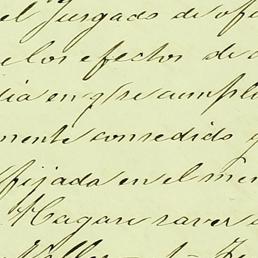 el Juzgado de ofi
e los efectos de c
dia en q̃ se cumpli
mente consedido q
fijada en el men
Hagase saver
Valles